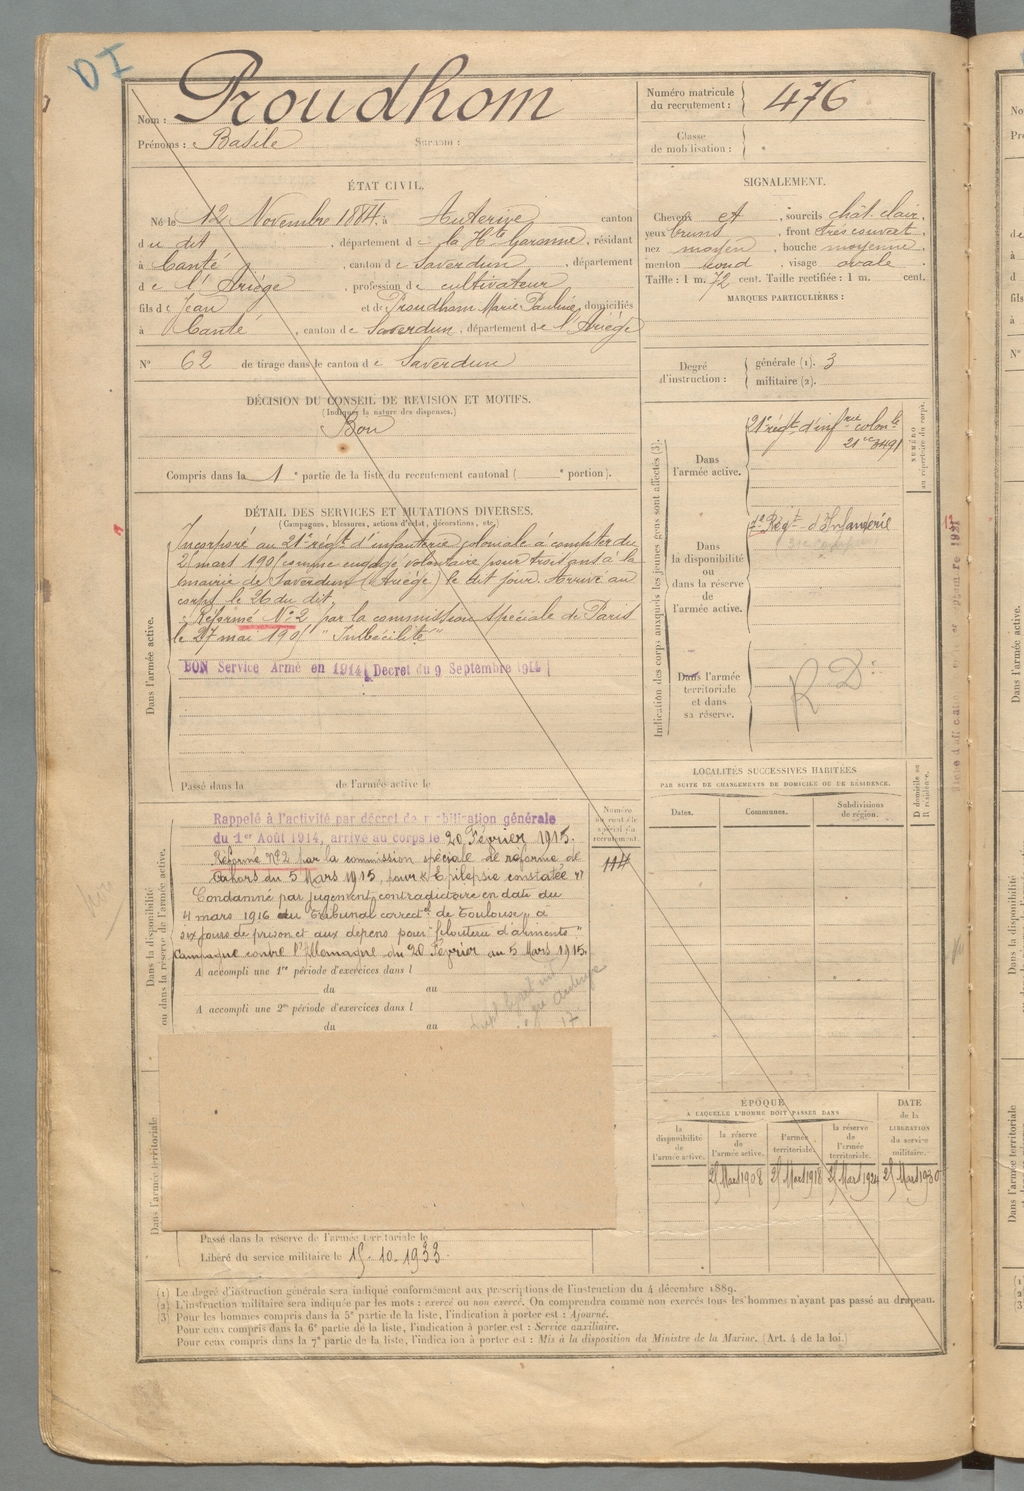 DI
Nom : Proudhom
Prénoms : Basile Surnom :
Numéro matricule du recrutement : 476
Classe de mobilisation :
ÉTAT CIVIL.
Né le 12 Novembre 1884, à Auterive canton
du dit, département de la Hte Garonne, résidant
à Canté, canton de Saverdun, département
de l'Ariège, profession de cultivateur
fils de Jean et de Proudham Marie Pauline, domiciliés
à Canté, canton de Saverdun, département de l'Ariège
N° 62 de tirage dans le canton de Saverdun
SIGNALEMENT.
Cheveux et, sourcils chât. clair,
yeux bruns, front très couvert,
nez moyen, bouche moyenne,
menton rond, visage ovale.
Taille : 1 m. 72 cent. Taille rectifiée : 1 m. cent.
MARQUES PARTICULIÈRES :
Degré d'instruction : générale (1). 3
militaire (2).
DÉCISION DU CONSEIL DE REVISION ET MOTIFS.
(Indiquer la nature des dispenses.)
Bon
Compris dans la 1e partie de la liste du recrutement cantonal ( e portion).
DÉTAIL DES SERVICES ET MUTATIONS DIVERSES.
(Campagnes, blessures, actions d'éclat, décorations, etc.)
Dans l'armée active.
Incorporé au 21e régt d'infanterie coloniale à compter du
mars 190 comme engagé volontaire pour trois ans à la
mairie de Saverdun (Ariège) le dit jour. Arrivé au
corps le 26 du dit.
Réformé N° 2 par la commission spéciale de Paris
le 27 mai 190 "Imbécilité"
BON Service Armé en 1914 (Décret du 9 Septembre 1914)
Passé dans la de l'armée active le
Dans la disponibilité ou dans la réserve de l'armée active.
Rappelé à l'activité par décret de mobilisation générale
du 1er Août 1914, arrivé au corps le 20 Février 1915.
Réformé N° 2 par la commission spéciale de réforme de
Cahors du 5 Mars 1915, pour Epilepsie constatée
Condamné par jugement contradictoire en date du
4 mars 1916 du Tribunal correctel de Toulouse, à
six jours de prison et aux dépens pour "filouterie d'aliments"
Campagne contre l'Allemagne du 20 Février au 5 Mars 1915.
A accompli une 1re période d'exercices dans l
du au
A accompli une 2e période d'exercices dans l
du au
Dans l'armée territoriale
Passé dans la réserve de l'armée territoriale le
Libéré du service militaire le 15-10-1933.
Indication des corps auxquels les jeunes gens sont affectés (3).
NUMÉRO au répertoire du corps.
Dans l'armée active.
21e régt d'infrie colonle
21 3491
Dans la disponibilité ou dans la réserve de l'armée active.
Régt d'Infanterie
Dans l'armée territoriale et dans sa réserve.
R D
LOCALITÉS SUCCESSIVES HABITÉES
PAR SUITE DE CHANGEMENTS DE DOMICILE OU DE RÉSIDENCE.
Dates. Communes. Subdivisions de région. D domicile ou R résidence.
114
ÉPOQUE
A LAQUELLE L'HOMME DOIT PASSER DANS
la disponibilité de l'armée active. la réserve de l'armée active. l'armée territoriale. la réserve de l'armée territoriale.
DATE de la LIBÉRATION du service militaire.
Mars 1908 Mars 1918 Mars 1924 Mars 1930
(1) Le degré d'instruction générale sera indiqué conformément aux prescriptions de l'instruction du 4 décembre 1889.
(2) L'instruction militaire sera indiquée par les mots : exercé ou non exercé. On comprendra comme non exercés tous les hommes n'ayant pas passé au drapeau.
(3) Pour les hommes compris dans la 5e partie de la liste, l'indication à porter est : Ajourné.
Pour ceux compris dans la 6e partie de la liste, l'indication à porter est : Service auxiliaire.
Pour ceux compris dans la 7e partie de la liste, l'indication à porter est : Mis à la disposition du Ministre de la Marine. (Art. 4 de la loi.)